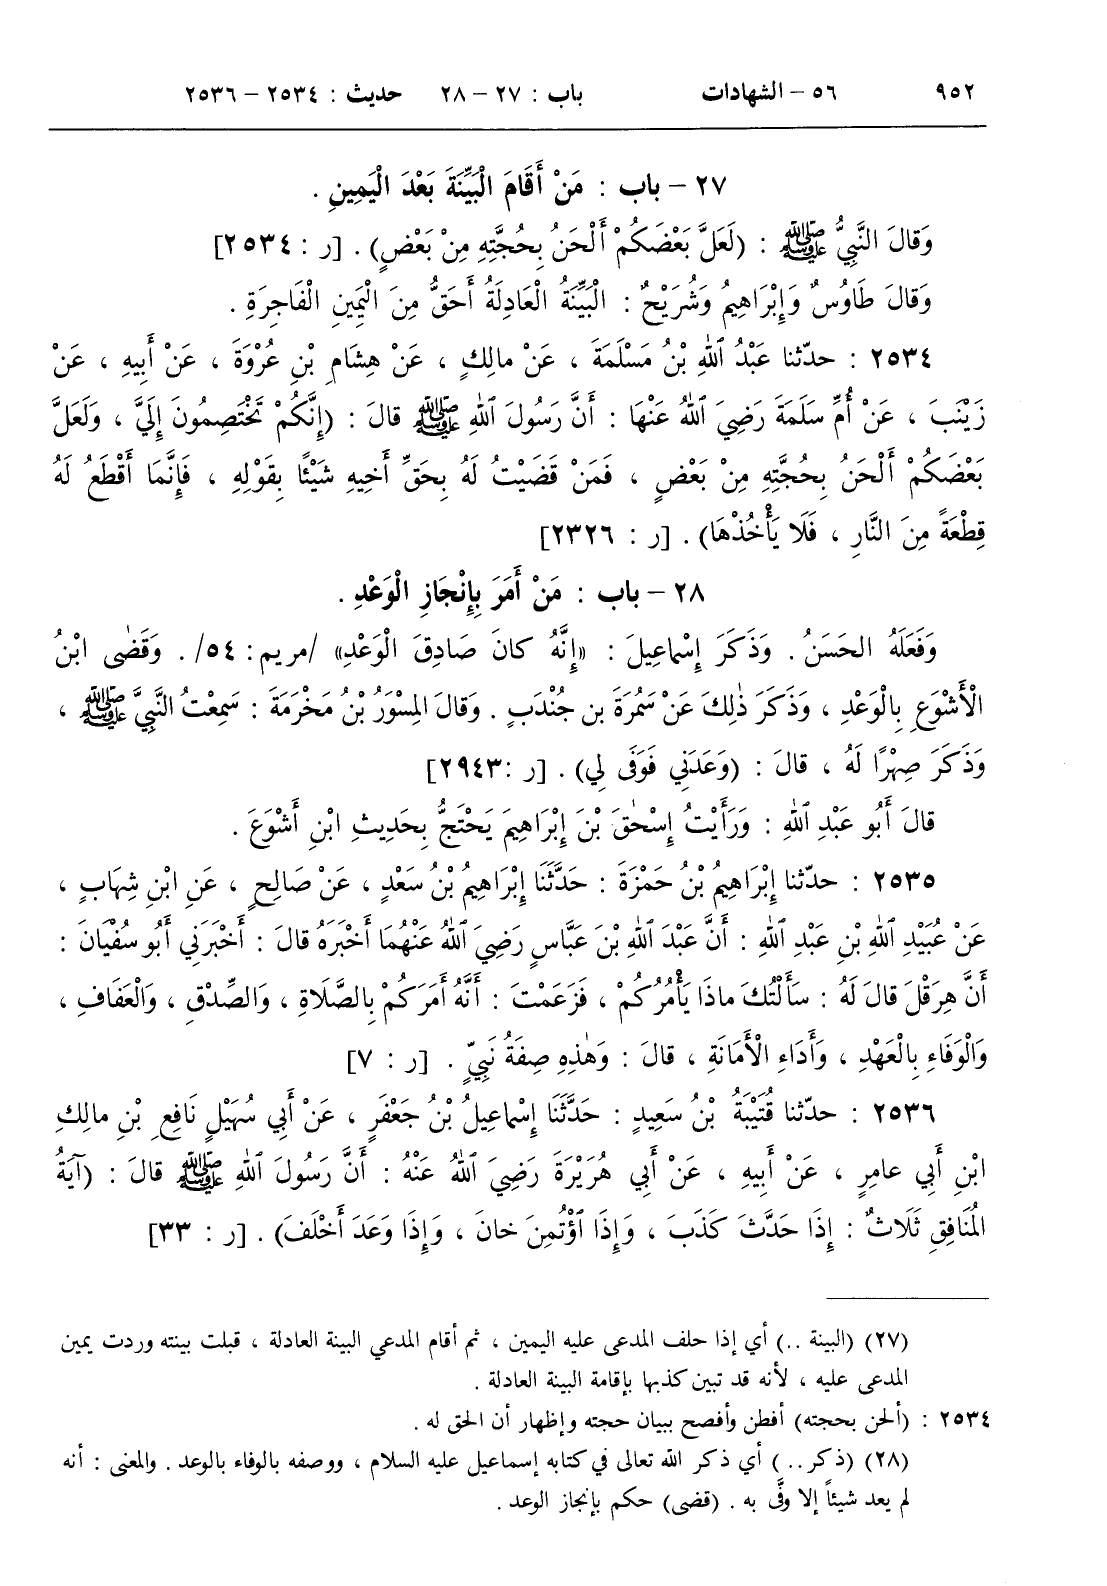 ٩٥٢ ٥٦ – الشهادات باب : ٢٧ – ٢٨ حديث : ٢٥٣٤ – ٢٥٣٦
٢٧ – باب : مَنْ أَقَامَ الْبَيِّنَةَ بَعْدَ الْيَمِينِ .
وَقالَ النَّبِيُّ ﷺ : (لَعَلَّ بَعْضَكُمْ أَلْحَنُ بِحُجَّتِهِ مِنْ بَعْضٍ) . [ر : ٢٥٣٤]
وَقالَ طَاوُسٌ وَإِبْرَاهِيمُ وَشُرَيْحٌ : الْبَيِّنَةُ الْعَادِلَةُ أَحَقُّ مِنَ الْيَمِينِ الْفَاجِرَةِ .
٢٥٣٤ : حدّثنا عَبْدُ ٱللهِ بْنُ مَسْلَمَةَ ، عَنْ مالِكٍ ، عَنْ هِشَامِ بْنِ عُرْوَةَ ، عَنْ أَبِيهِ ، عَنْ
زَيْنَبَ ، عَنْ أُمِّ سَلَمَةَ رَضِيَ ٱللهُ عَنْهَا : أَنَّ رَسُولَ ٱللهِ ﷺ قالَ : (إِنَّكُمْ تَخْتَصِمُونَ إِلَيَّ ، وَلَعَلَّ
بَعْضَكُمْ أَلْحَنُ بِحُجَّتِهِ مِنْ بَعْضٍ ، فَمَنْ قَضَيْتُ لَهُ بِحَقِّ أَخِيهِ شَيْئًا بِقَوْلِهِ ، فَإِنَّمَا أَقْطَعُ لَهُ
قِطْعَةً مِنَ النَّارِ ، فَلَا يَأْخُذْهَا) . [ر : ٢٣٢٦]
٢٨ – باب : مَنْ أَمَرَ بِإِنْجَازِ الْوَعْدِ .
وَفَعَلَهُ الحَسَنُ . وَذَكَرَ إِسْماعِيلَ : «إِنَّهُ كانَ صَادِقَ الْوَعْدِ» /مريم: ٥٤/ . وَقَضٰى ابْنُ
الْأَشْوَعِ بِالْوَعْدِ ، وَذَكَرَ ذٰلِكَ عَنْ سَمُرَةَ بن جُنْدَبٍ . وَقالَ المِسْوَرُ بْنُ مَخْرَمَةَ : سَمِعْتُ النَّبِيَّ ﷺ ،
وَذَكَرَ صِهْرًا لَهُ ، قالَ : (وَعَدَنِي فَوَفَى لِي) . [ر :٢٩٤٣]
قالَ أَبُو عَبْدِ ٱللهِ : وَرَأَيْتُ إِسْحٰقَ بْنَ إِبْرَاهِيمَ يَحْتَجُّ بِحَدِيثِ ابْنِ أَشْوَعَ .
٢٥٣٥ : حدّثنا إِبْرَاهِيمُ بْنُ حَمْزَةَ : حَدَّثَنَا إِبْرَاهِيمُ بْنُ سَعْدٍ ، عَنْ صَالِحٍ ، عَنِ ابْنِ شِهَابٍ ،
عَنْ عُبَيْدِ ٱللهِ بْنِ عَبْدِ ٱللهِ : أَنَّ عَبْدَ ٱللهِ بْنَ عَبَّاسٍ رَضِيَ ٱللهُ عَنْهُمَا أَخْبَرَهُ قالَ : أَخْبَرَنِي أَبُو سُفْيَانَ :
أَنَّ هِرَقْلَ قالَ لَهُ : سَأَلْتُكَ ماذَا يَأْمُرُكُمْ ، فَزَعَمْتَ : أَنَّهُ أَمَرَكُمْ بِالصَّلَاةِ ، وَالصِّدْقِ ، وَالْعَفَافِ ،
وَالْوَفَاءِ بِالْعَهْدِ ، وَأَدَاءِ الْأَمَانَةِ ، قالَ : وَهٰذِهِ صِفَةُ نَبِيٍّ . [ر : ٧]
٢٥٣٦ : حدّثنا قُتَيْبَةُ بْنُ سَعِيدٍ : حَدَّثَنَا إِسْماعِيلُ بْنُ جَعْفَرٍ ، عَنْ أَبِي سُهَيْلٍ نَافِعِ بْنِ مالِكِ
ابْنِ أَبِي عامِرٍ ، عَنْ أَبِيهِ ، عَنْ أَبِي هُرَيْرَةَ رَضِيَ ٱللهُ عَنْهُ : أَنَّ رَسُولَ ٱللهِ ﷺ قالَ : (آيَةُ
المُنَافِقِ ثَلَاثٌ : إِذَا حَدَّثَ كَذَبَ ، وَإِذَا ٱؤْتُمِنَ خانَ ، وَإِذَا وَعَدَ أَخْلَفَ) . [ر : ٣٣]
(٢٧) (البينة ..) أي إذا حلف المدعى عليه اليمين ، ثم أقام المدعي البينة العادلة ، قبلت بينته وردت يمين
المدعى عليه ، لأنه قد تبين كذبها بإقامة البينة العادلة .
٢٥٣٤ : (ألحن بحجته) أفطن وأفصح ببيان حجته وإظهار أن الحق له .
(٢٨) (ذكر ..) أي ذكر الله تعالى في كتابه إسماعيل عليه السلام ، ووصفه بالوفاء بالوعد . والمعنى : أنه
لم يعد شيئاً إلا وفَّى به . (قضى) حكم بإنجاز الوعد .